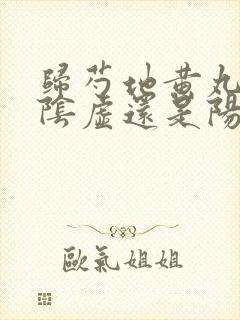 歸芍地黃丸
陰虛還是陽
歐氣姐姐